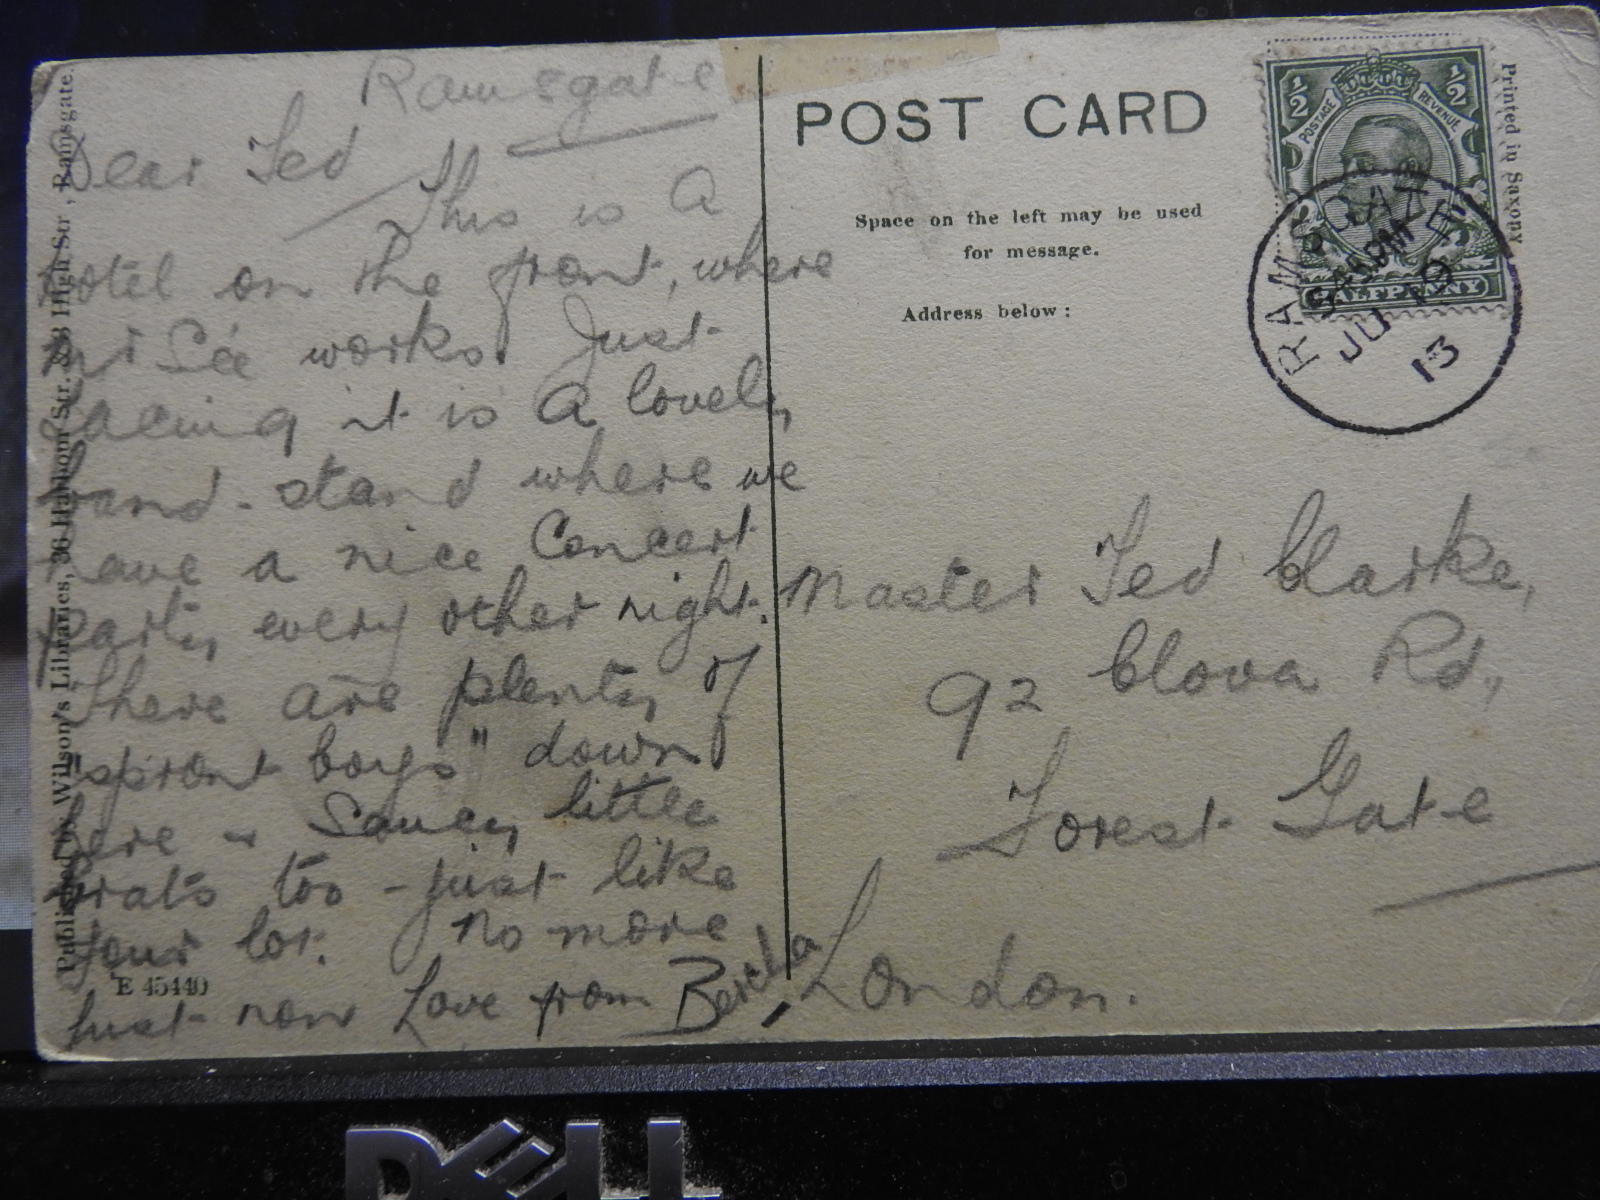 Ramsgate
Dear Ted
This is a
hotel on the front, where
works. Just
facing it is a lovely
band-stand where we
have a nice Concert
party every other night.
There are plenty of
"sprout boys" down
here & Saucy little
brats too - just like
your lot. No more
just now Love from Bertha
Published by Wilson's Libraries, 36 Harbour Str. High Str., Ramsgate.
E 45440
POST CARD
Space on the left may be used
for message.
Address below:
Master Ted Clarke,
92 Clova Rd.,
Forest Gate
London.
½ ½
POSTAGE REVENUE
HALFPENNY
RAMSGATE
JU 19
13
Printed in Saxony
DELL